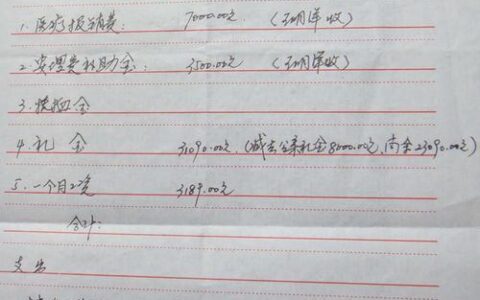 1. 医疗报销费: 7000.00元 (王明泽收)
2. 安埋费补助金: 3500.00元 (王明泽收)
3. 抚恤金
4. 礼金 31090.00元 (减去公亲礼金8000.00元,尚余23090.00元)
5. 一个月工资 3189.00元
合计:
支出